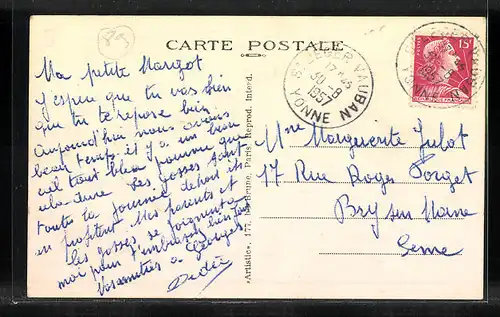 89
CARTE POSTALE
Ma petite Margot
J'espère que tu vas bien
que tu te repose bien
Aujourd'hui nous avons
beau temps il y a un beau
ciel tout bleu comme que
Les gosses sont
toute la journée dehors et
en profitent Mes parents et
les gosses se joignent a
moi pour t'embrasser bien fort
Vos amitiés a Georges
Dédée
«Artistic», 177, La Brune, Paris Reprod. Interd.
St LEGER VAUBAN
YONNE
30-8
1957
15F
REPUBLIQUE FRANÇAISE
Mme Marguerite Julot
17 Rue Roger Porget
Bry sur Marne
Seine